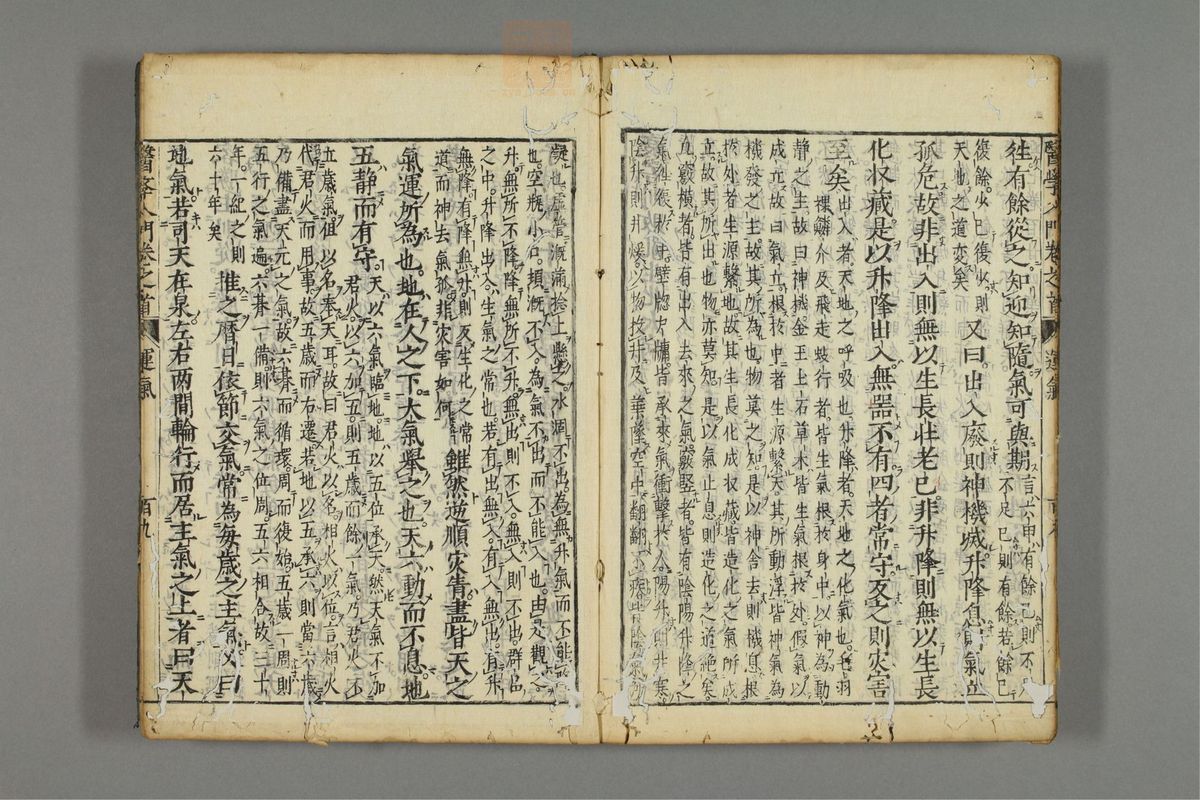 徃有餘從之知迎知隨氣可與期言六甲有餘已則不
不足已則有餘若餘已
復餘少已復少則
天地之道变矣
又曰出入廢則神機㓕升降息則氣立
孤危故非出入則無以生長壮老已非升降則無以生長
化収蔵是以升降出入無器不有四者常守反之則灾害
至矣出入者天地之呼吸也升降者天地之化氣也毛羽
倮鱗介及飛走蚑行者皆生氣根於身中以神為動
静之主故曰神機金玉土石草木皆生氣根於処假氣以
成立故曰氣立根於中者生源繫天其所動浮皆神氣為
機發之主故其所為也物莫之知是以神舍去則機息根
於处者生源繫地故其生長化成収蔵皆造化之氣所成
立故其所出也物亦莫知是以氣止息則造化之道絶矣
直竅横者皆有出入去來之氣竅竪者皆有陰陽升降之
氣徃復於中壁牎户牖皆承來氣衝擊於人陽升則井寒
陰升則井煖以物投井及葉墜空中翩翩不疾皆陰氣所
醫學入門卷之首 運氣
礙也虛管溉滿捻上懸之水固不出為無升氣而不能
也空瓶小口頓溉不入為氣不出而不能入也由是觀之
升無所不降降無所不升無出則不入無入則不出群品
之中升降出入生氣之常也若有出無入有入無出有升
無降有降無升則反生化之常
道而神去氣孤非灾害如何
雖然逆順灾眚盡皆天之
氣運所為也地在人之下大氣舉之也天六動而不息地
五静而有守天以六氣臨地地以五位承天然天氣不加
君火以六加五則五歲而餘一氣乃君火不
立歲氣但以名奉天耳故曰君火以名相火以位言相火
代君火而用事故五歲而右遷若地以五承六則當六歲
乃備盡天元之氣故六朞而循環周而復始五歲一周則
五行之氣遍六朞一備則六氣之位周五六相合故三十
年一紀之則
六十年矣
推之暦日依節交氣常為每歲之主氣又曰
地氣若司天在泉左右两間輪行而居主氣之上者曰天
醫學入門卷之首 運氣 百九